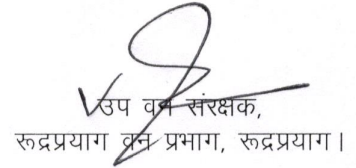 उप वन संरक्षक,
रूद्रप्रयाग वन प्रभाग, रूद्रप्रयाग।